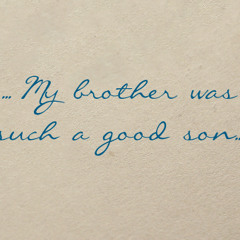 ... My brother was
such a good son...